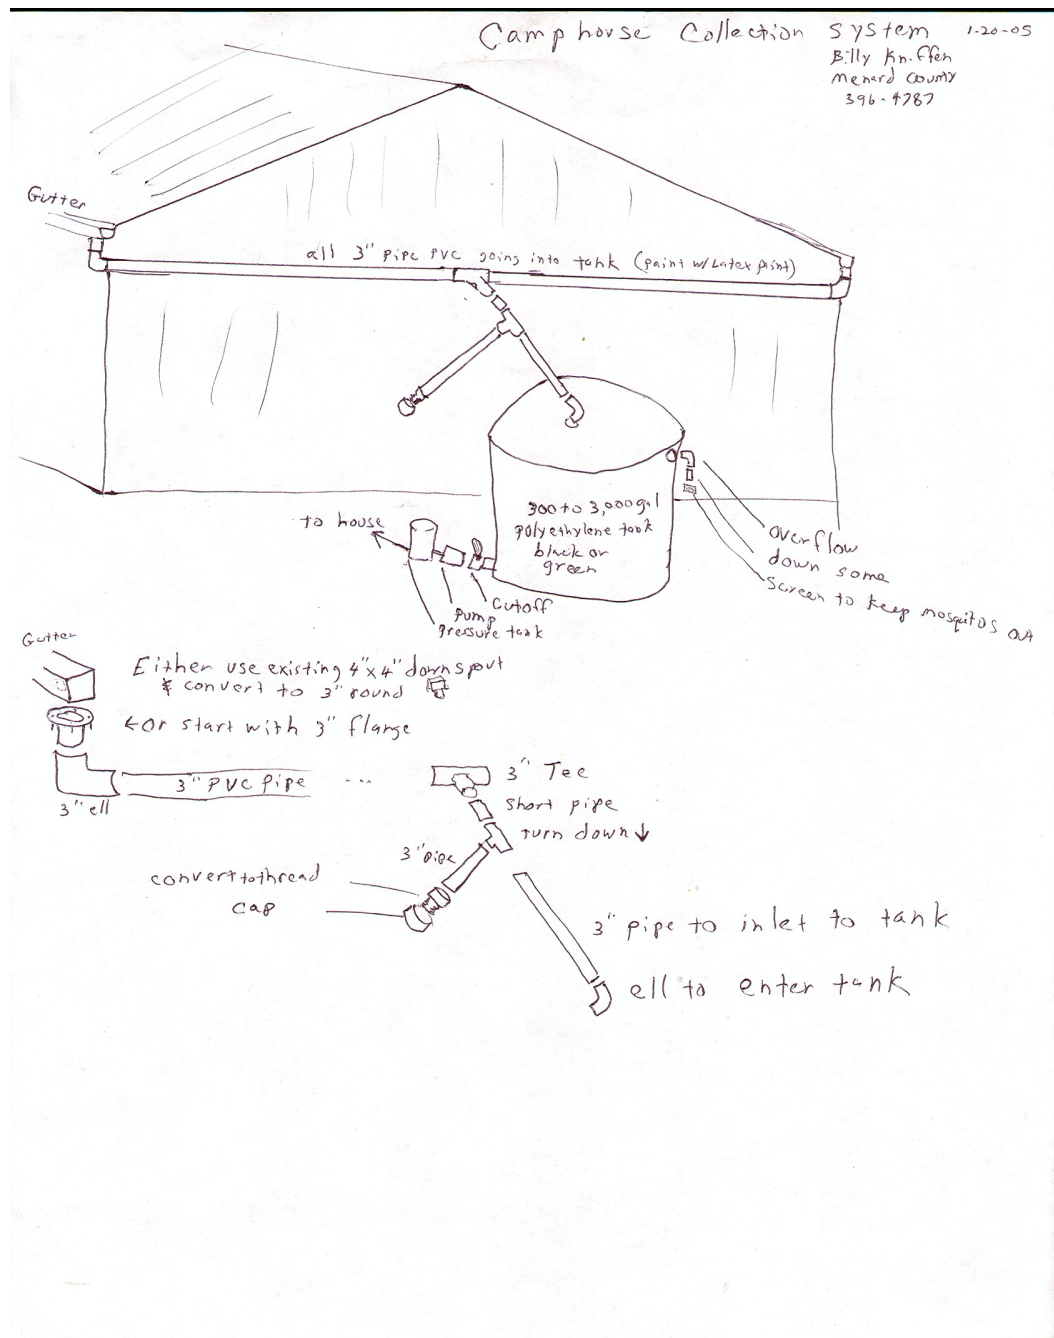 Camphouse Collection System 1-20-05
Billy Kniffen
Menard County
396-4787
Gutter
all 3" pipe PVC going into tank (paint w/Latex paint)
300 to 3,000 gal
polyethylene tank
black or
green
to house
Overflow
down some
Screen to keep mosquitos out
Cutoff
Pump
Pressure tank
Gutter
Either use existing 4"x4" downspout
& convert to 3" round
←Or start with 3" flange
3" PVC Pipe ...
3" ell
3" Tee
Short pipe
turn down ↓
3" pipe
convert to thread
cap
3" pipe to inlet to tank
ell to enter tank